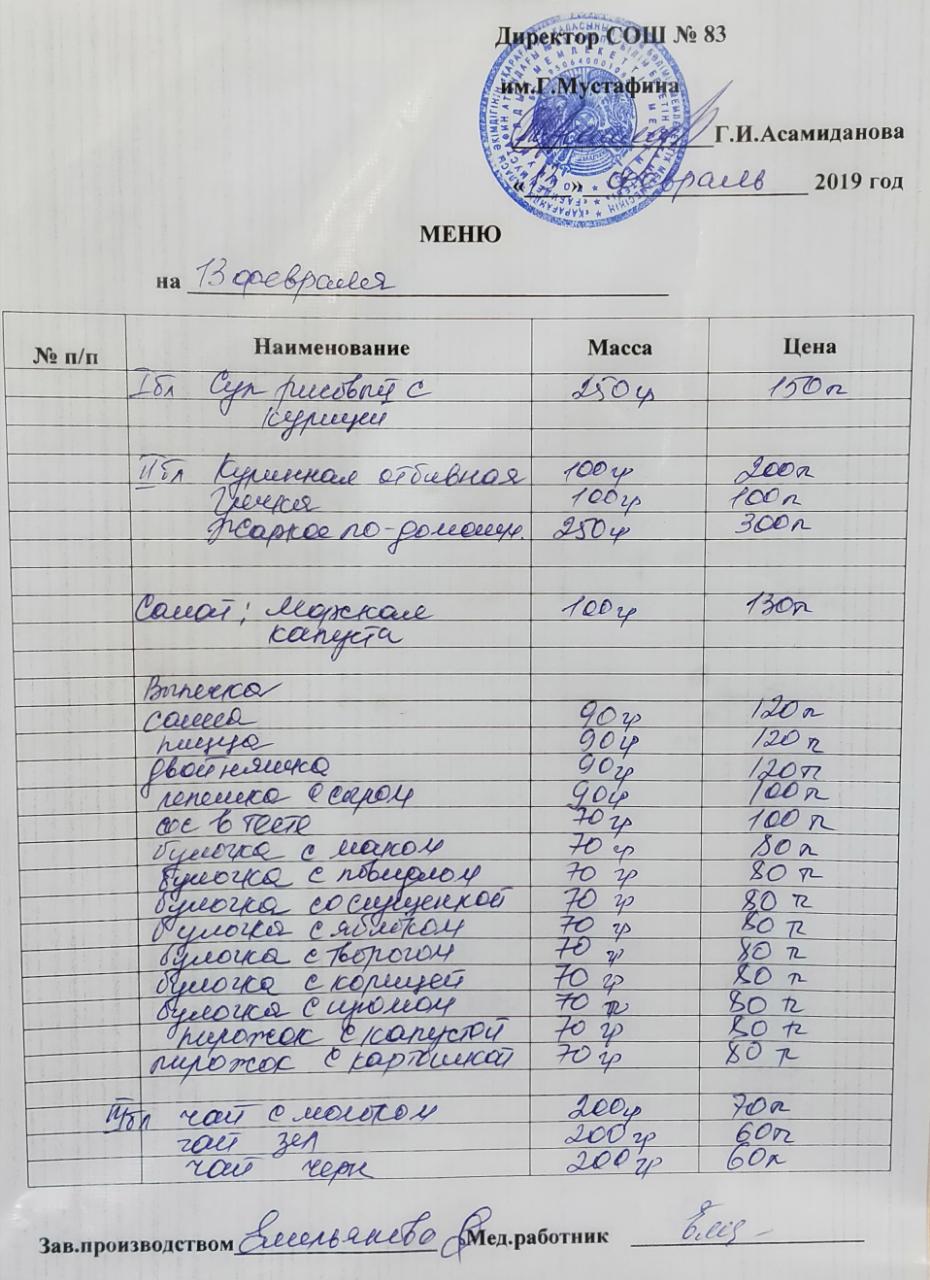 Директор СОШ № 83
им.Г.Мустафина
Г.И.Асамиданова
« » февраль 2019 год
МЕНЮ
на 13 февраля
№ п/п Наименование Масса Цена
I бл Суп рисовый с 250гр 150т
курицей
II бл Куринная отбивная 100гр 200т
Гречка 100гр 100т
Жаркое по-домашн. 250гр 300т
Салат: Морская 100гр 130т
капуста
Выпечка
самса 90гр 120т
пицца 90гр 120т
двойняшка 90гр 120т
лепешка с сыром 90гр 100т
сос в тесте 70гр 100т
булочка с маком 70гр 80т
булочка с повидлом 70гр 80т
булочка со сгущенкой 70гр 80т
булочка с яблоком 70гр 80т
булочка с творогом 70гр 80т
булочка с корицей 70гр 80т
булочка с изюмом 70гр 80т
пирожок с капустой 70гр 80т
пирожок с картошкой 70гр 80т
III бл чай с молоком 200гр 70т
чай зел 200гр 60т
чай черн 200гр 60т
Зав.производством Емельянова Мед.работник